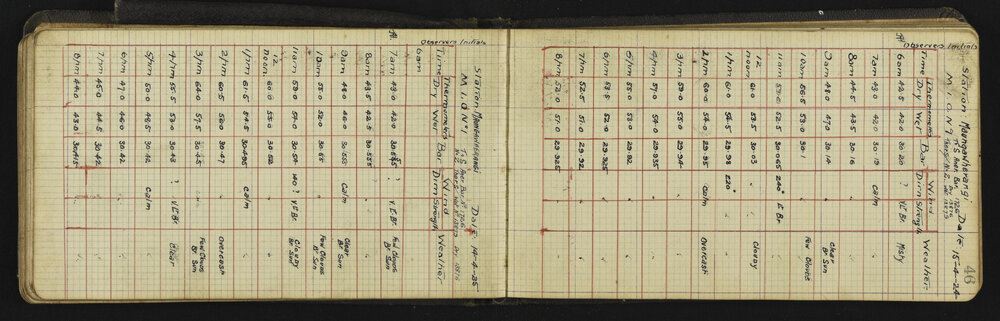 46
Station Maungawherangi Date 15-4-24
M.I.D Nº 1
Observers Initials
Thermometers Wind
Time Dry Wet Bar Dirn Strength Weather
6am 42.0 42.0 30.20 ? V.L Br. Misty
7am 43.0 42.0 30.19 calm "
8am 44.5 43.5 30.16 " "
9am 48.0 47.0 30.14 " clear
Br Sun
10am 56.5 53.0 30.1 " Few Clouds
11am 59.0 30.065 240° L Br "
12
noon 61.0 53.5 30.03 " " Cloudy
1pm 61.0 54.5 29.98 220° " "
2pm 60.0 54.0 29.95 calm Overcast
3pm 59.0 55.0 29.94 " "
4pm 57.0 54.0 29.935 " "
5pm 55.0 52.0 29.92 " "
6pm 53.5 52.0 29.925 " "
7pm 52.5 51.0 29.92 " "
8pm 52.0 51.0 29.925 " "
Station Maungawherangi Date 14-4-25
M.I.D Nº 1
Observers Initials
Thermometers Wind
Time Dry Wet Bar Dirn Strength Weather
6am
7am 43.0 42.0 30.545 ? V.L Br. Few Clouds
Br Sun
8am 43.5 42.5 30.555 " " "
9am 48.0 46.0 30.555 calm Clear
Br Sun
10am 55.0 52.0 30.55 " Few Clouds
Br Sun
11am 59.0 54.0 30.54 140° V.L Br Cloudy
Br Sun
12
noon 60.0 55.0 30.52 " " "
1pm 61.5 54.5 30.495 calm "
2pm 60.5 53.0 30.47 " Overcast
3pm 64.0 57.5 30.45 " Few Clouds
Br Sun
4pm 55.5 52.0 30.43 ? V.L Br clear
5pm 50.0 48.5 30.42 calm "
6pm 47.0 46.0 30.42 " "
7pm 45.0 44.5 30.42 " "
8pm 44.0 43.0 30.415 " "